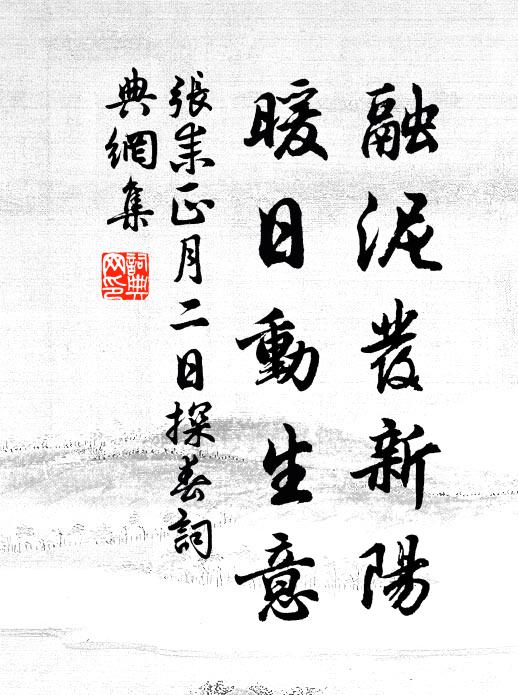 融泥發新陽
暖日動生意
張耒正月二日探春詞
典網集
詞典
网印